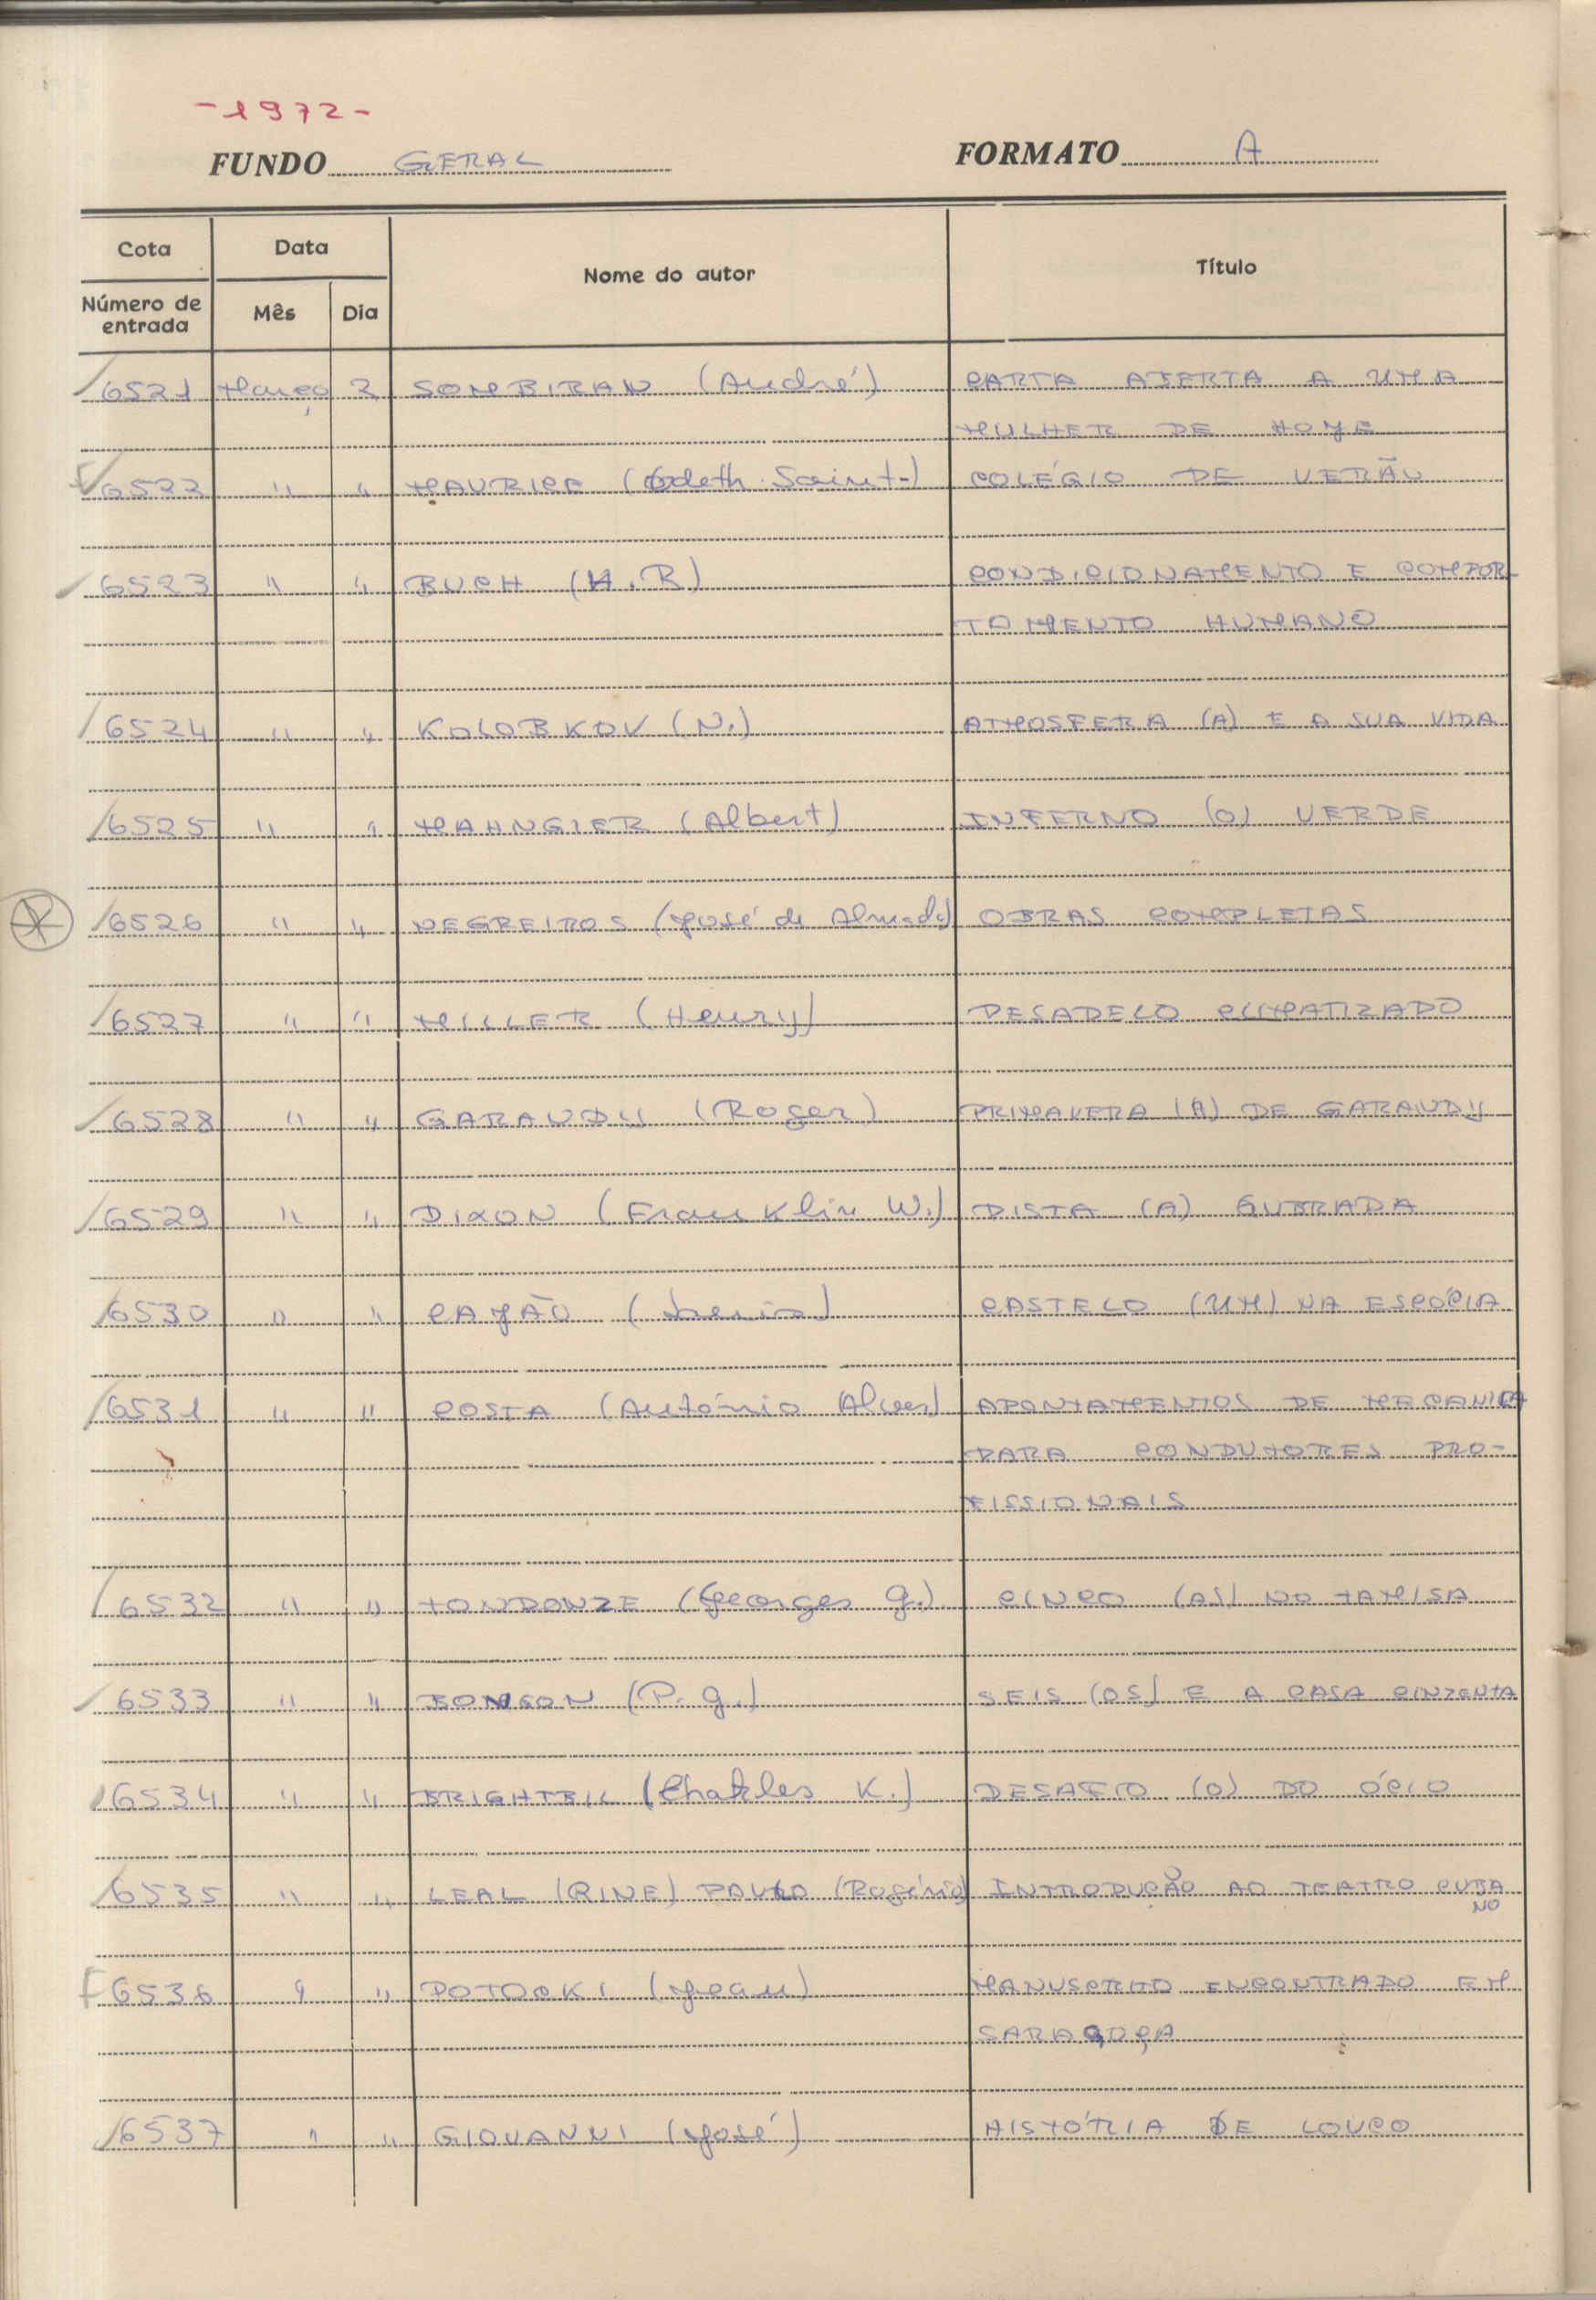 -1972-
FUNDO GERAL FORMATO A
Cota Data Nome do autor Título
Número de entrada Mês Dia
6521 Março 2 SOMBIRAN (André) CARTA ABERTA A UMA
MULHER DE HOJE
6522 " " MAURICE (Odeth Saint-) COLÉGIO DE VERÃO
6523 " " BUCH (H.R) CONDICIONAMENTO E COMPOR
TAMENTO HUMANO
6524 " " KOLOBKOV (N.) ATMOSFERA (A) E A SUA VIDA
6525 " " MAHNGIER (Albert) INFERNO (O) VERDE
6526 " " NEGREIROS (José de Almada) OBRAS COMPLETAS
6527 " " MILLER (Henry) PESADELO CLIMATIZADO
6528 " " GARAUDY (Roger) PRIMAVERA (A) DE GARAUDY
6529 " " DIXON (Franklin W.) PISTA (A) QUEBRADA
6530 " " CAJÃO (Luenio) CASTELO (UM) NA ESCÓCIA
6531 " " COSTA (António Alves) APONTAMENTOS DE MECANICA
PARA CONDUTORES PRO-
FISSIONAIS
6532 " " TONDONZE (Georges G.) CINCO (AS) NO TAMISA
6533 " " BONSON (P. J.) SEIS (OS) E A CASA CINZENTA
6534 " " BRIGHTBIL (Charles K.) DESAFIO (O) DO ÓCIO
6535 " " LEAL (RINE) PAULO (Rogério) INTRODUÇÃO AO TEATRO CUBA
NO
6536 " " POTOCKI (Jean) MANUSCRITO ENCONTRADO EM
SARAGOÇA
6537 " " GIOVANNI (José) HISTÓRIA DE LOUCO